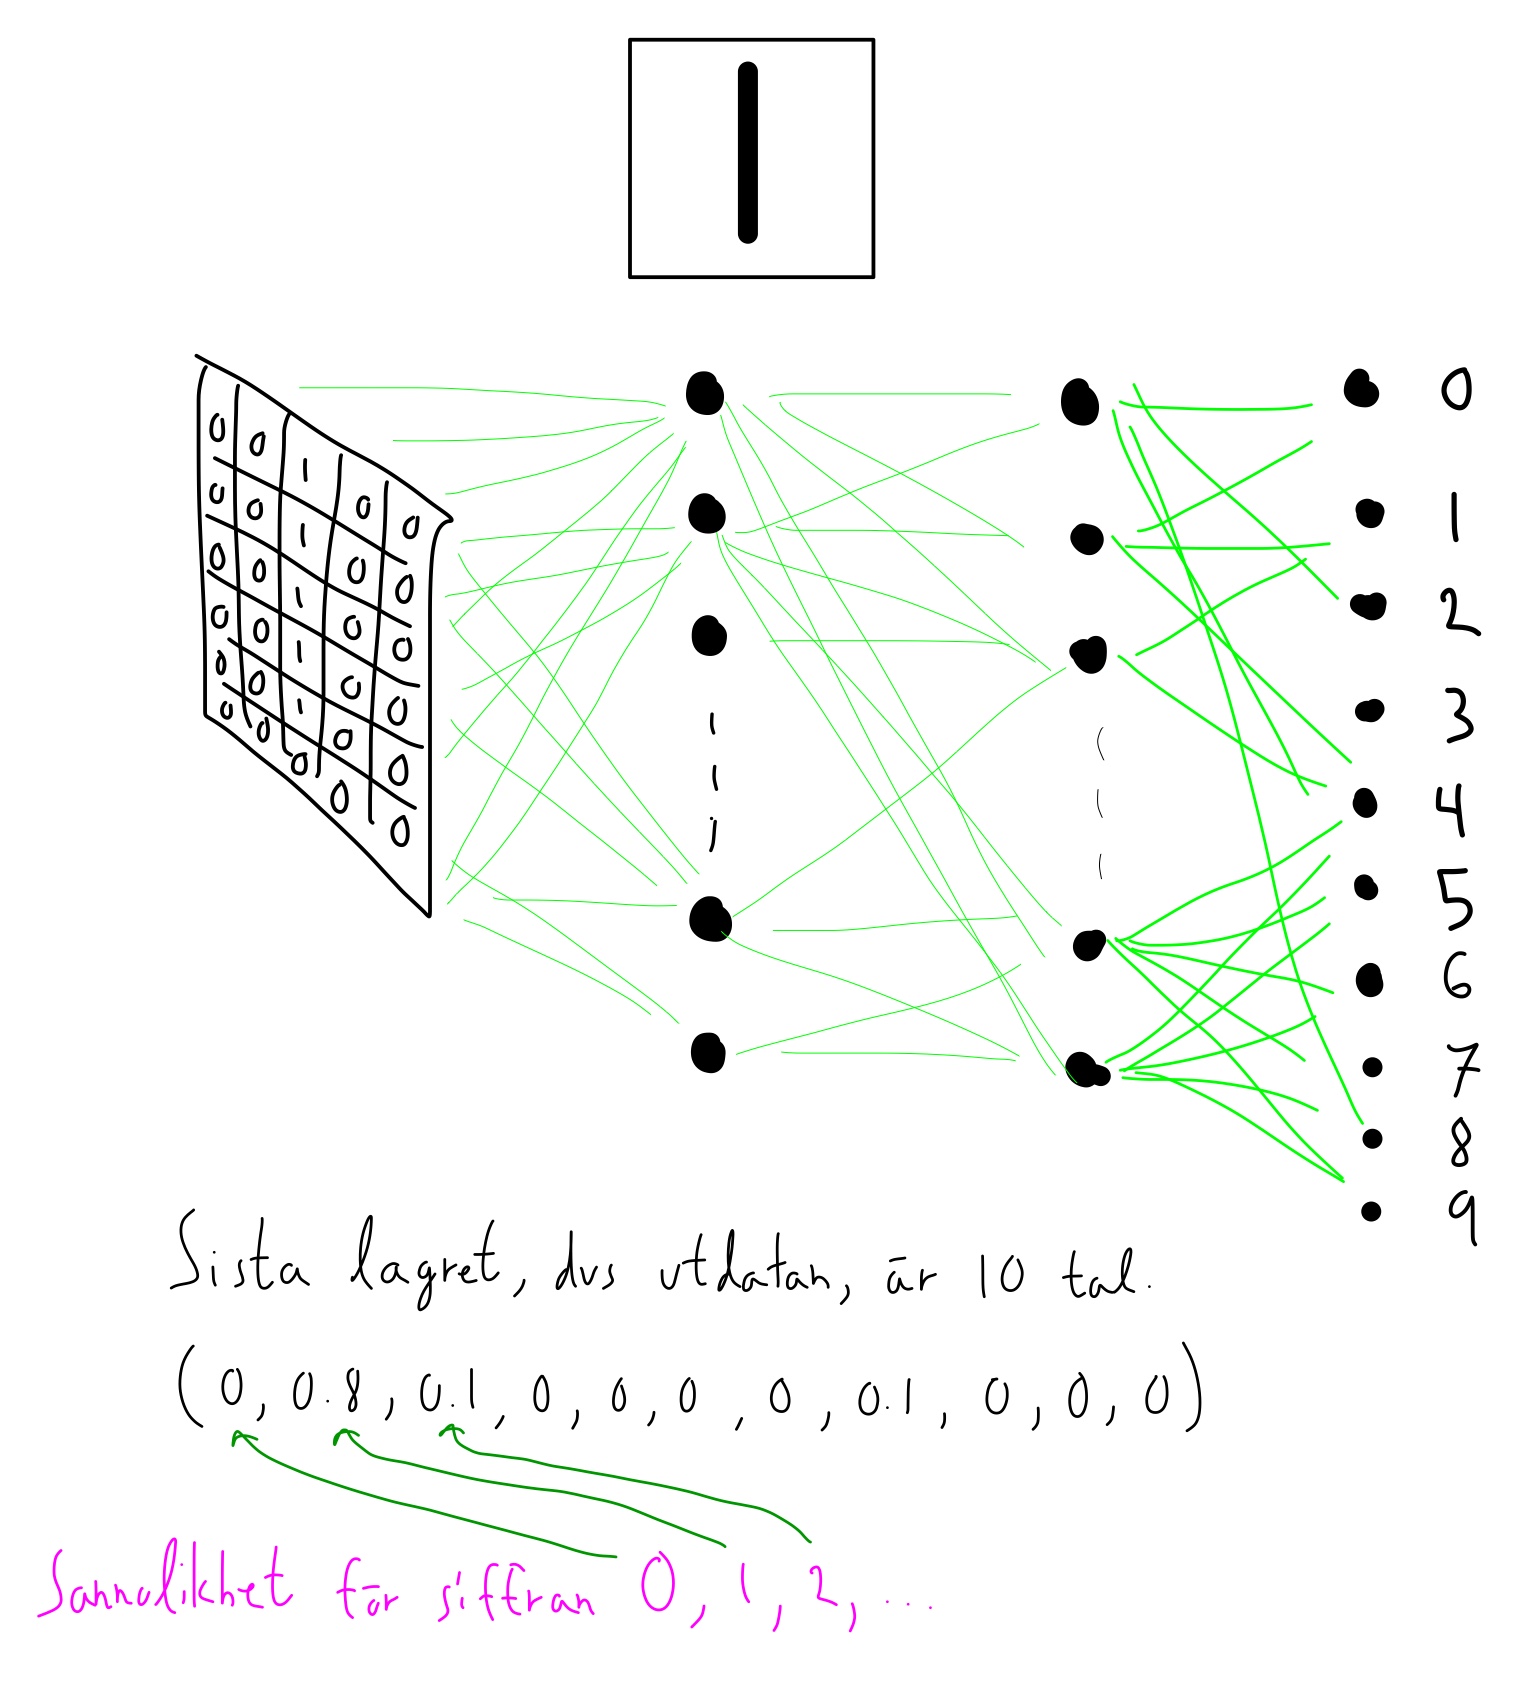 1
0 0 1 0 0
0 0 1 0 0
0 0 1 0 0
0 0 1 0 0
0 0 1 0 0
0 0 0 0 0
0
1
2
3
4
5
6
7
8
9
Sista lagret, dvs utdatan, är 10 tal.
(0, 0.8, 0.1, 0, 0, 0, 0, 0.1, 0, 0, 0)
Sannolikhet för siffran 0, 1, 2, ...